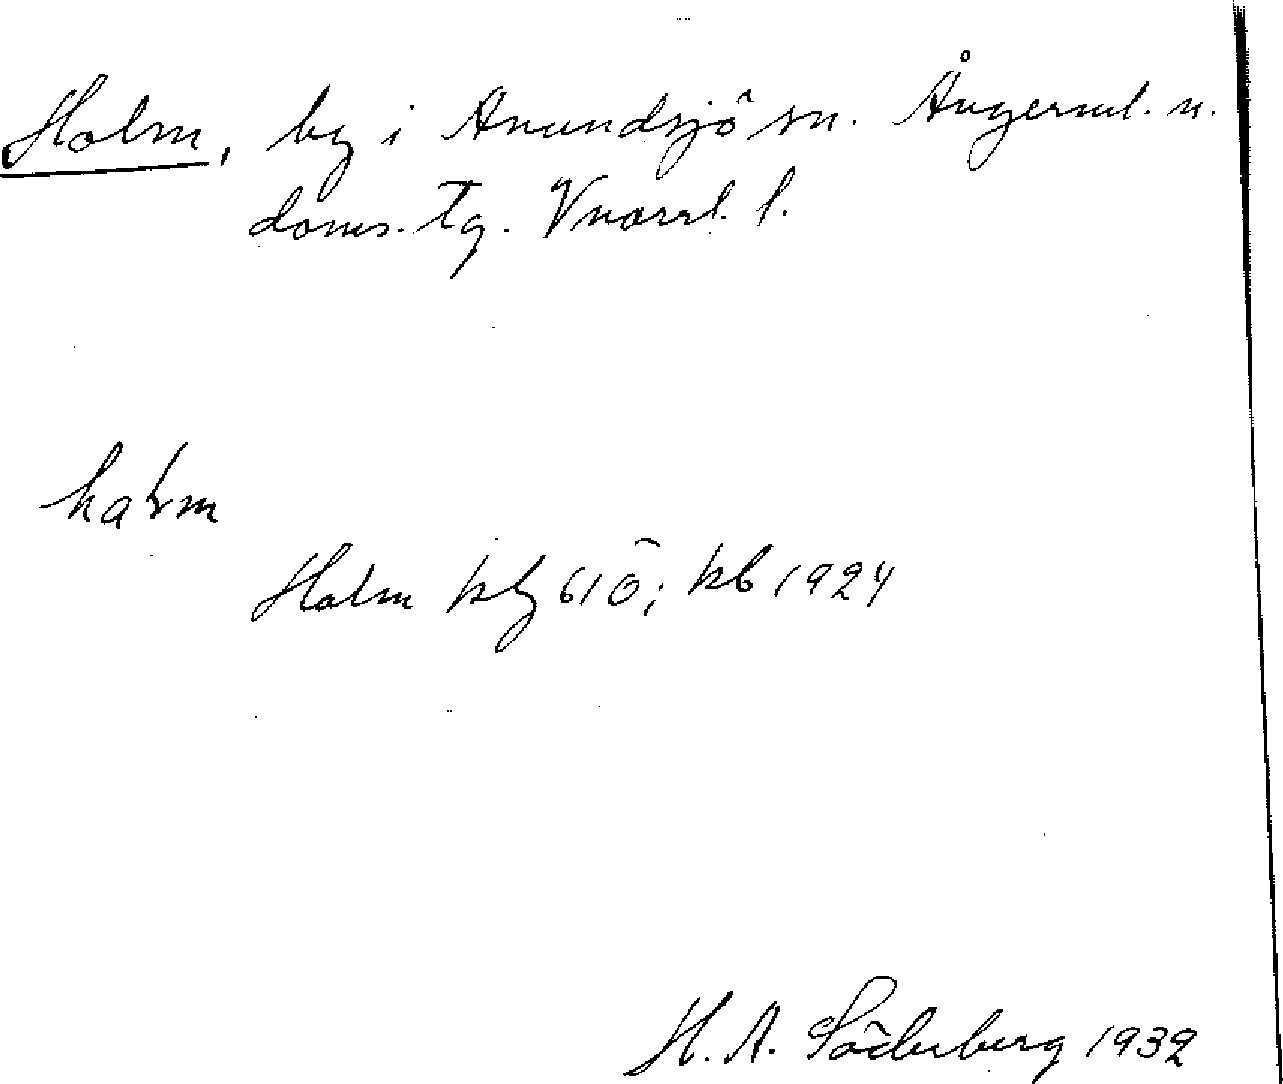 Holm, by i Anundsjö sn. Ångerml. n.
doms. tg. Vnorrl. l.
halm
Holm kbg 61 ö; kb 1924
H. A. Söderberg 1932